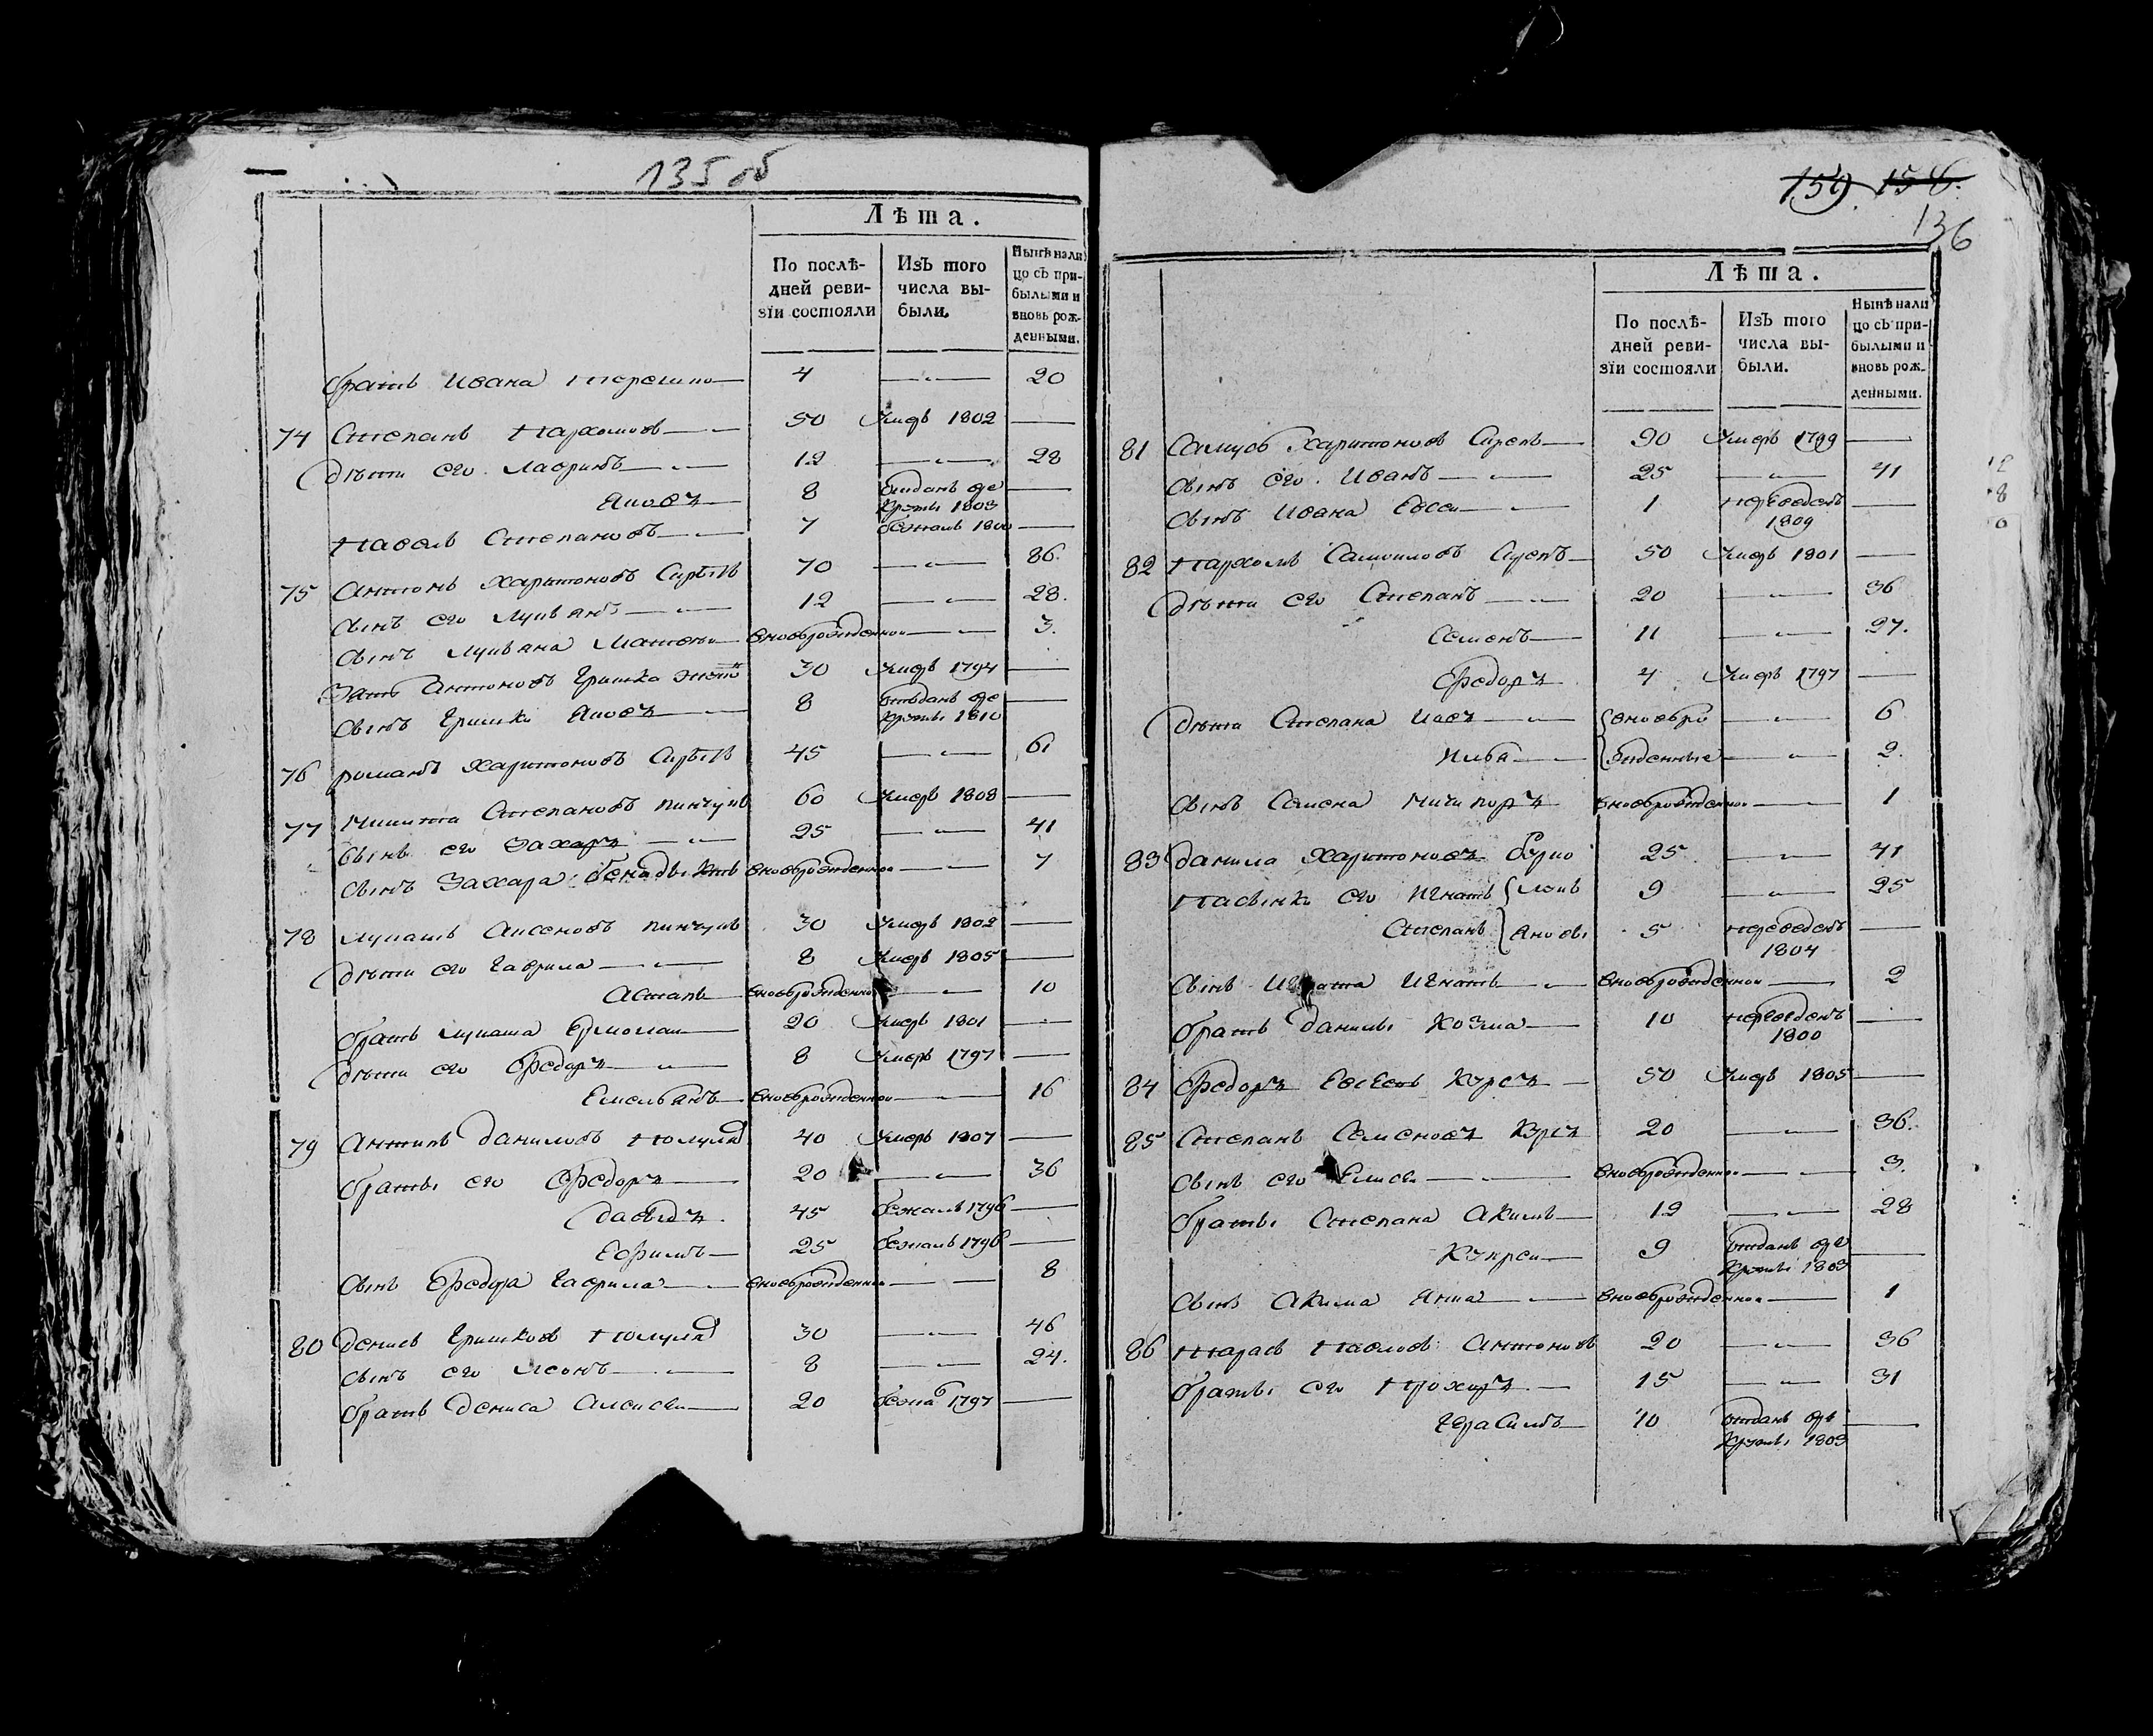 135 об
Лѣта.
По послѣ-
дней реви-
зїи состояли
Изъ того
числа вы-
были.
Нынѣ нали
цо съ при-
былыми и
вновь рож-
денными.
братъ Ивана 4 20
74 Степанъ Пархомовъ 50 Умеръ 1802
дѣти его Лавринъ 12 28
Яковъ 8 отданъ
1803
Павелъ Степановъ 7 бежалъ 1800
75 Антонъ Харитоновъ 70 86.
Сынъ его Лукьянъ 12 28.
Сынъ Лукьяна Матвей новорожденной 3.
Зять Антоновъ Гришка 30 Умеръ 1794
Сынъ Гришки Яковъ 8 отъданъ
1810
76 романъ Харитоновъ 45 61
77 Микита Степановъ пинчукъ 60 Умеръ 1808
Сынъ его Захаръ 25 41
Сынъ Захара новорожденной 7
78 Лукашъ Аксеновъ пинчукъ 30 Умеръ 1802
дѣти его Гаврила 8 Умеръ 1805
Астапъ новорожденной 10
братъ Лукаша Ермолаи 20 Умеръ 1801
дѣти его Федоръ 8 Умеръ 1797
Емельянъ новорожденной 16
79 Антипъ даниловъ 40 Умеръ 1807
братьи его Федоръ 20 36
давыдъ 45 бежалъ 1796
Ефимъ 25 бежалъ 1796
Сынъ Федора Гаврила новорожденной 8
80 денисъ Гришковъ 30 46
Сынъ его Леонъ 8 24.
братъ дениса Алексеи 20 бежа 1797
159 156.
136
Лѣта.
По послѣ-
дней реви-
зїи состояли
Изъ того
числа вы-
были.
Нынѣ нали
цо съ при-
былыми и
вновь рож-
денными.
81 Самусь Харитоновъ 90 Умеръ 1799
Сынъ его Иванъ 25 41
Сынъ Ивана Евсеи 1 переведенъ
1809
82 Пархомъ Самоиловъ 50 Умеръ 1801
дѣти его Степанъ 20 36
Семенъ 11 27.
Федоръ 4 Умеръ 1797
дѣти Степана новоро 6
жденные 2.
Сынъ Семена Ничипоръ новорожденной 1
83 данила Харитоновъ 25 41
Пасынки его Игнатъ 9 25
Степанъ 5 переведенъ
1804
Сынъ Игната Игнатъ новорожденной 2
братъ данилы Козма 10 переведенъ
1800
84 Федоръ 50 Умеръ 1805
85 Степанъ Семеновъ 20 36.
Сынъ его Елисеи новорожденной 3.
братьи Степана Акимъ 12 28
9 отданъ
1803
Сынъ Акима новорожденной 1
86 Тарасъ Павловъ Антоновъ 20 36
братьи его Прохоръ 15 31
Герасимъ 10 отданъ
1803